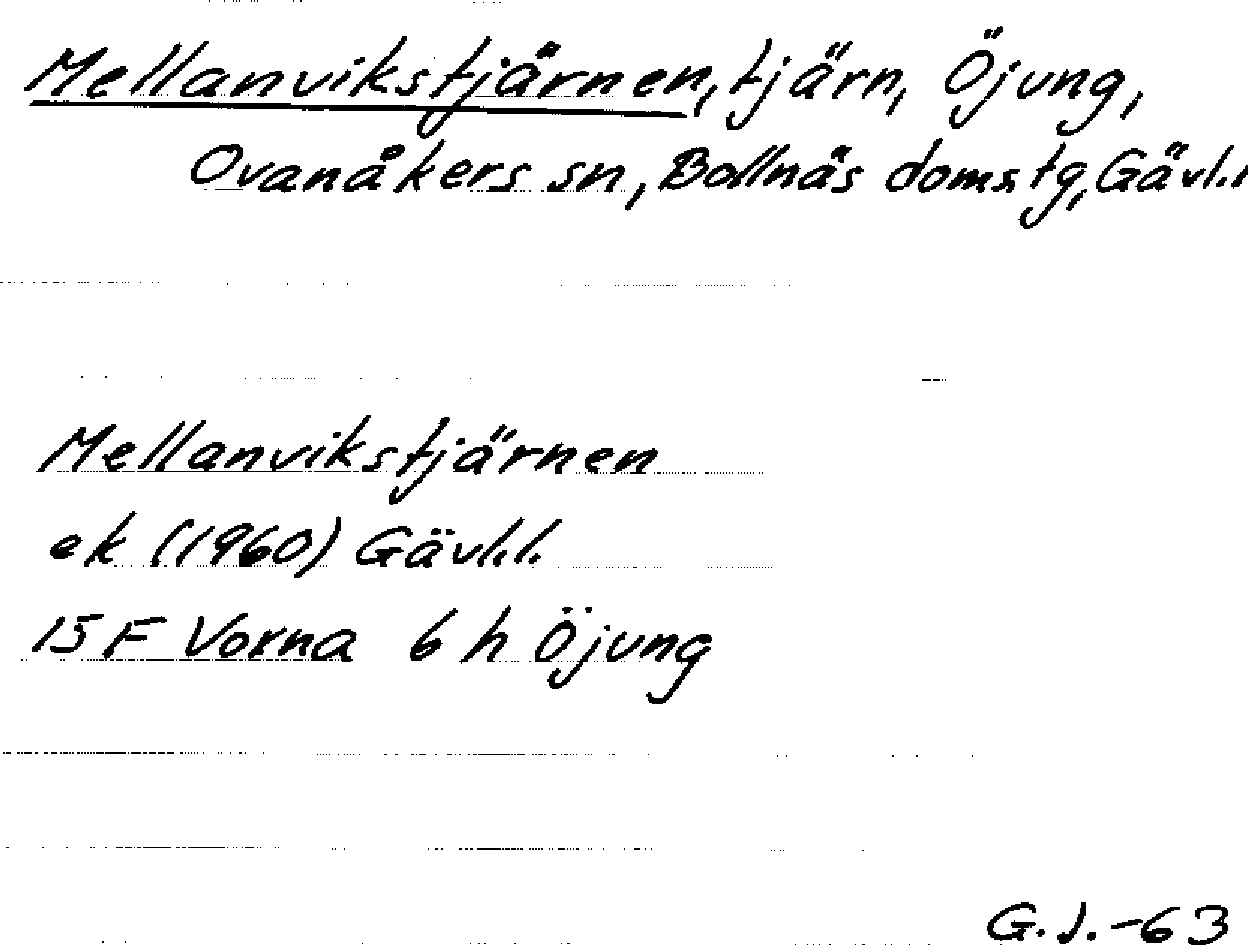 Mellanvikstjärnen, tjärn, Öjung,
Ovanåkers sn, Bollnäs domstg, Gävl.l
Mellanvikstjärnen
ek (1960) Gävl.l.
15 F Voxna 6 h Öjung
G.J.-63